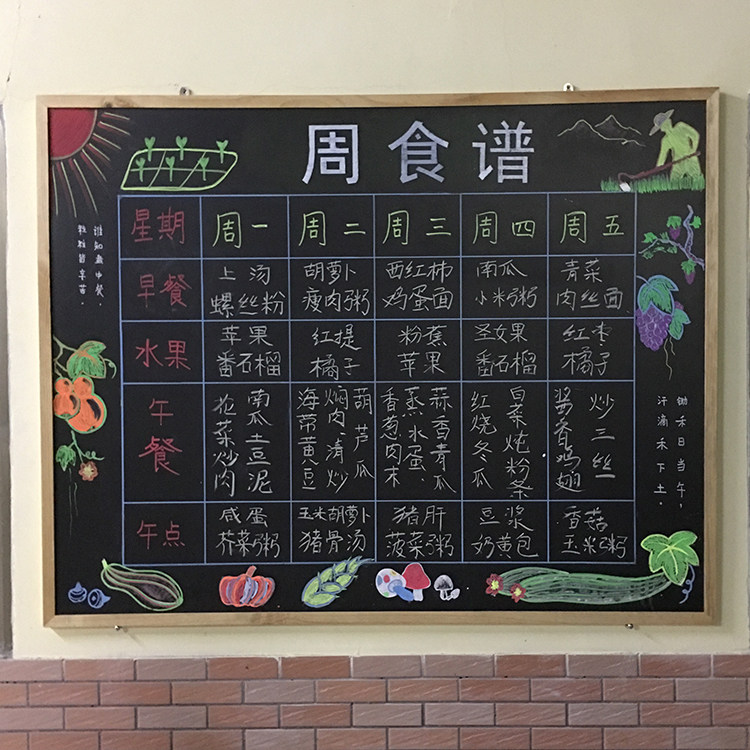 周食谱
锄禾日当午,
汗滴禾下土。
谁知盘中餐,
粒粒皆辛苦。
星期
周一
周二
周三
周四
周五
早餐
上汤
螺丝粉
胡萝卜
瘦肉粥
西红柿
鸡蛋面
南瓜
小米粥
青菜
肉丝面
水果
苹果
番石榴
红提
橘子
粉蕉
苹果
圣女果
番石榴
红枣
橘子
午餐
花菜炒肉
南瓜土豆泥
海带黄豆
焖肉、清炒
葫芦瓜
香葱肉末
蒸水蛋、
蒜香青瓜
红烧冬瓜
白菜炖粉条
酱香鸡翅
炒三丝
午点
咸蛋
芥菜粥
玉米胡萝卜
猪骨汤
猪肝
菠菜粥
豆浆
奶黄包
香菇
玉米粥